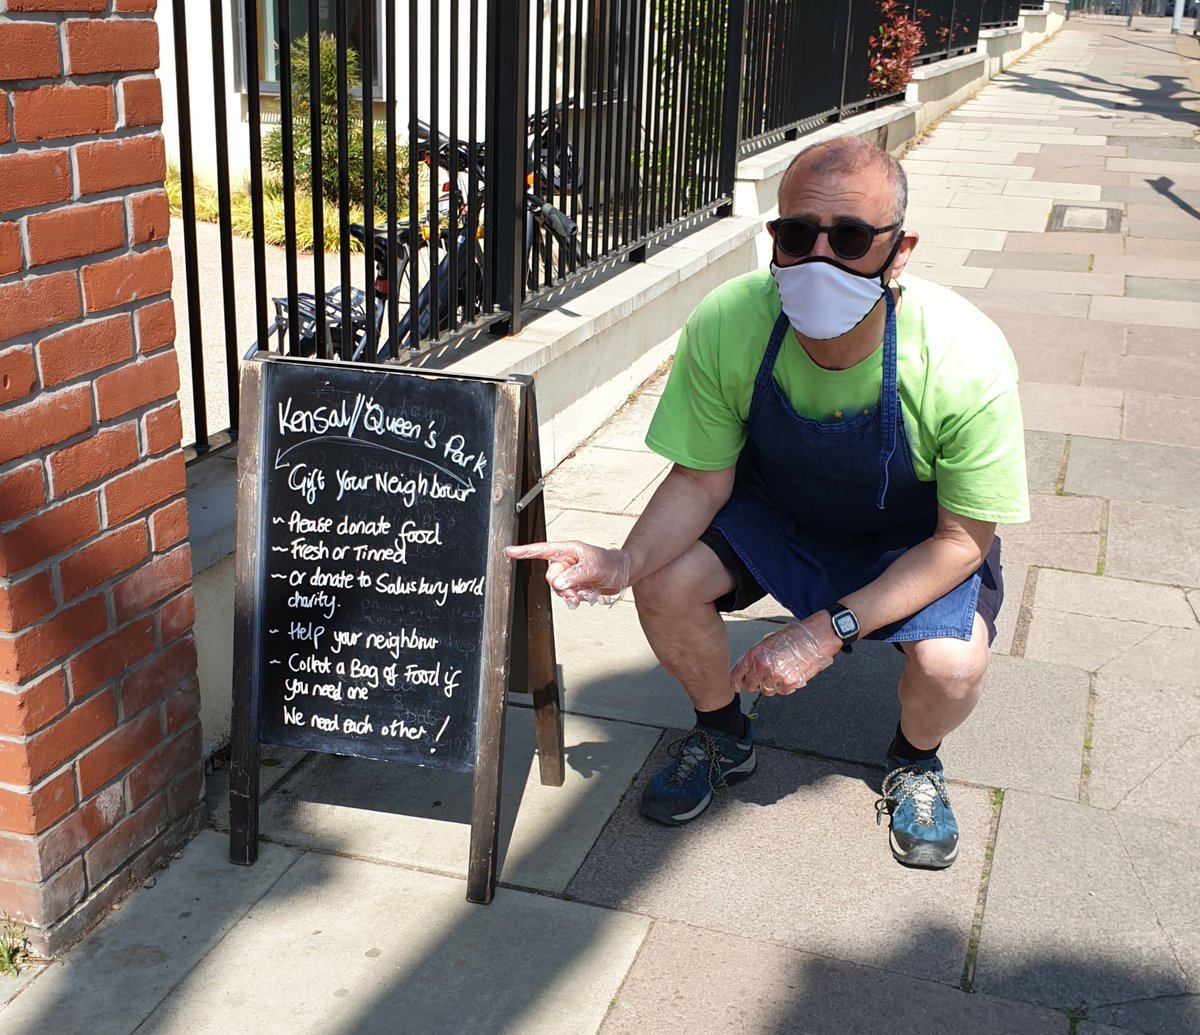 Kensal//Queen's Park
Gift Your Neighbour
~ Please donate food
~ Fresh or Tinned
~ or donate to Salusbury World
charity.
~ Help your neighbour
~ Collect a Bag of Food if
you need one
We need each other!